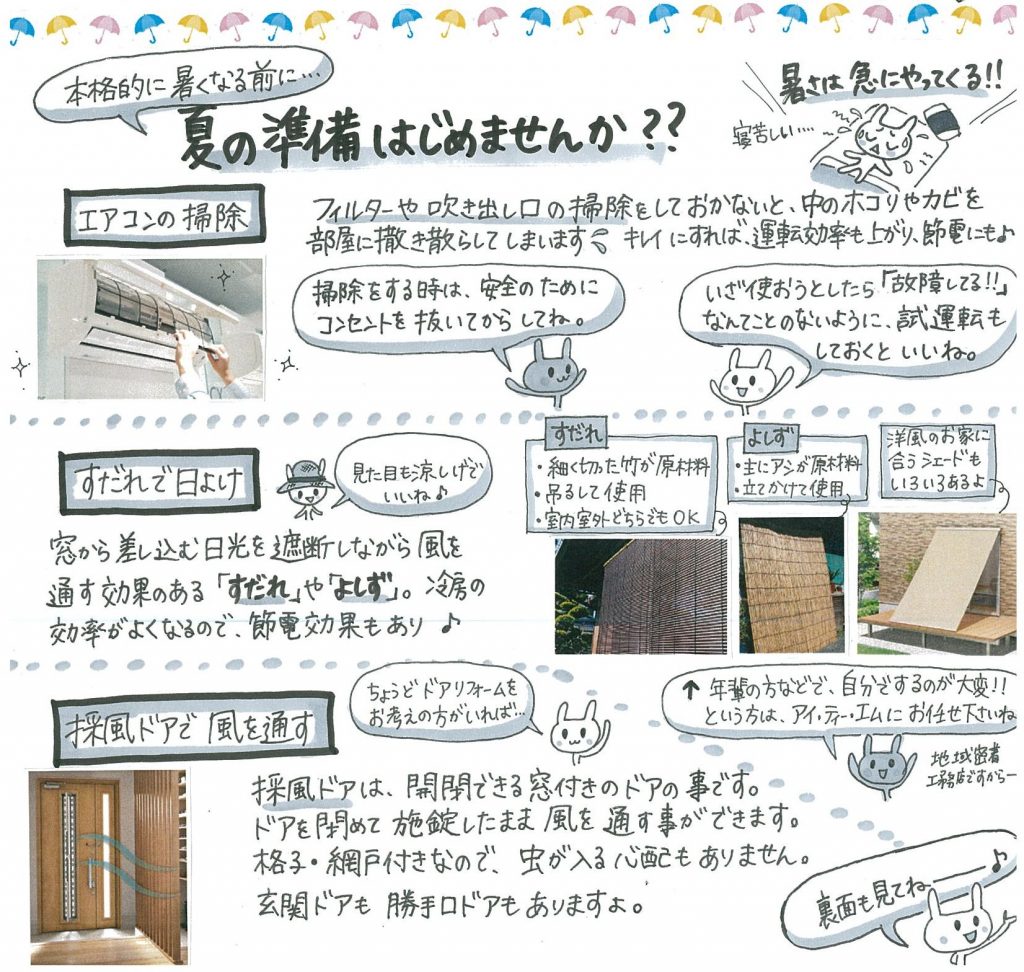 本格的に暑くなる前に…
夏の準備はじめませんか??
暑さは急にやってくる!!
寝苦しい….
エアコンの掃除
フィルターや吹き出し口の掃除をしておかないと、中のホコリやカビを
部屋に撒き散らしてしまいます キレイにすれば、運転効率も上がり、節電にも♪
掃除をする時は、安全のために
コンセントを抜いてからしてね。
いざ使おうとしたら「故障してる!!」
なんてことのないように、試運転も
しておくといいね。
すだれで日よけ
見た目も涼しげで
いいね♪
窓から差し込む日光を遮断しながら風を
通す効果のある「すだれ」や「よしず」。冷房の
効率がよくなるので、節電効果もあり♪
すだれ
・細く切った竹が原材料
・吊るして使用
・室内室外どちらでもOK
よしず
・主にアシが原材料
・立てかけて使用
洋風のお家に
合うシェードも
いろいろあるよ
採風ドアで風を通す
ちょうどドアリフォームを
お考えの方がいれば…
↑年輩の方などで、自分でするのが大変!!
という方は、アイ・ティー・エムにお任せ下さいね
地域密着
工務店ですからー
採風ドアは、開閉できる窓付きのドアの事です。
ドアを閉めて施錠したまま風を通す事ができます。
格子・網戸付きなので、虫が入る心配もありません。
玄関ドアも勝手口ドアもありますよ。
裏面も見てね♪